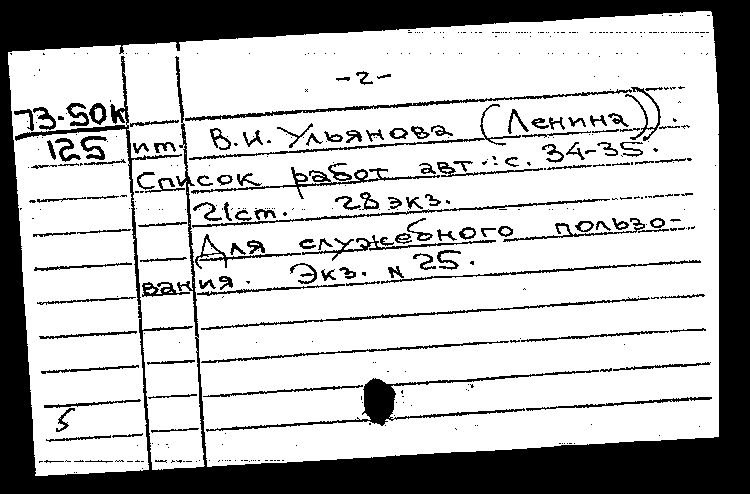 -2-
73-50к
125 ит. В.И. Ульянова (Ленина)).
Список работ авт.: с. 34-35.
21ст. 28 экз.
Для служебного пользо-
вания. Экз. № 25.
5